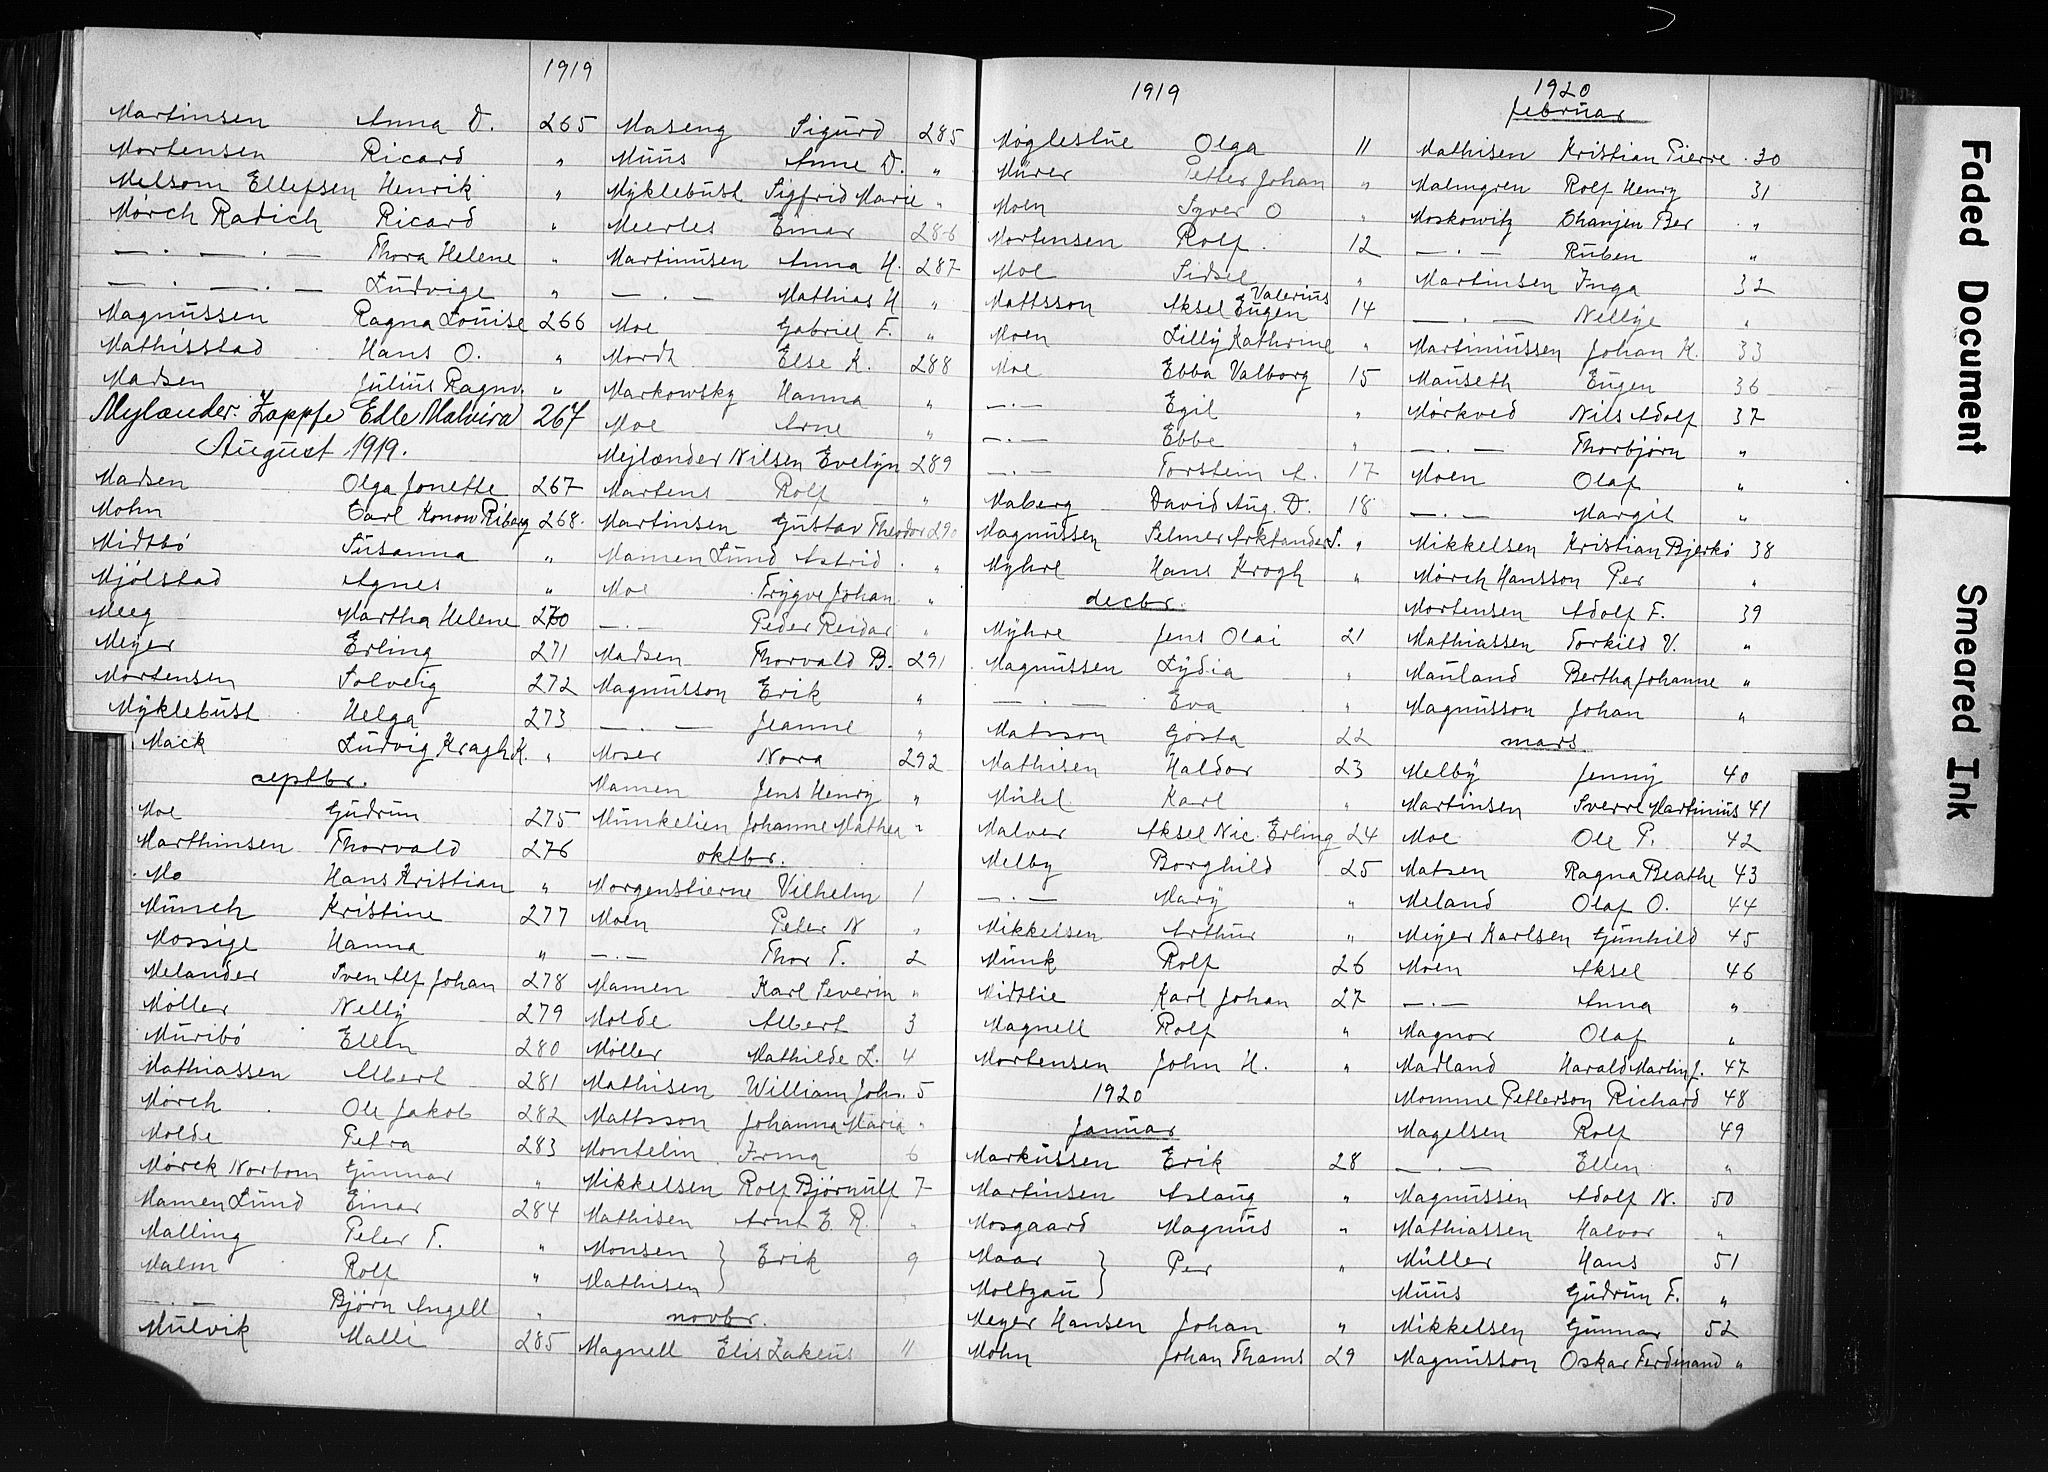 1919
Martinsen Anna D. 265
Mortensen Ricard "
Melsom Ellefsen Henrik "
Mørch Radich Ricard "
— . — . — Thora Helene "
— . — . — Ludvige "
Magnussen Ragna Louise 266
Mathisstad Hans O. "
Madsen Julius Ragnv. "
Mylænder-Zappfe Elle Malvira 267
August 1919.
Madsen Olga Jonette 267
Mohn Carl Konow Riberg 268.
Midtbö Susanna "
Mjölstad Agnes "
Meeg Martha Helene 270
Meyer Erling 271
Mortensen Solveig 272
Myklebust Helga 273
Mack Ludvig Kragh K. "
septbr.
Moe Gudrun 275
Marthinsen Thorvald 276
Mo Hans Kristian "
Münch Kristine 277
Mossige Hanna "
Melander Sven Alf Johan 278
Möller Nelly 279
Muribö Ellen 280
Mathiassen Albert 281
Mørch Ole Jakob 282
Molde Petra 283
Mørck Norbom Gunnar "
Mamen Lund Einar 284
Malling Peter T. "
Malm Rolf "
— . — Björn Angell "
Mulvik Malli 285
Maseng Sigurd 285
Muus Anne D. "
Myklebust Sigfrid Marie "
Meerles Emer 286
Martinusen Anna H. 287
— . — Mathias H "
Moe Gabriel F. "
Mordt Else K. 288
Markowsky Hanna "
Moe Arne "
Mejlænder Nilsen Evelyn 289
Martens Rolf "
Martinsen Gustav Theodor 290
Mamen Lund Astrid "
Moe Trygve Johan "
— . — Peder Reidar "
Madsen Thorvald B. 291
Magnusson Erik "
— . — Jeanne "
Moser Nora 292
Mamen Jens Henry "
Munkelien Johanne Mathea "
oktbr.
Morgenstierne Vilhelm 1
Moen Peter N "
— . — Thor T. 2
Mamen Karl Severin "
Molde Albert 3
Møller Mathilde L. 4
Mathisen William Joh. 5
Mattsson Johanna Maria "
Montelin Irma 6
Mikkelsen Rolf Bjørnulf 7
Mathisen Arne E. R. "
Monsen } Erik 9
Mathisen }
novbr.
Magnell Elis Zakeus 11
1919
Møglestue Olga 11
Murer Petter Johan "
Moen Syver O "
Mortensen Rolf. 12
Moe Sidsel "
Mattsson Aksel Eugen Valerius 14
Moen Lilly Kathrine "
Moe Ebba Valborg 15
— . — Egil "
— . — Ebbe "
— . — Torstein A. 17
Maberg David Aug. D. 18
Magnussen Selmer Arktander S. "
Myhre Hans Krogh "
decbr.
Myhre Jens Olai 21
Magnussen Lydia "
— . — Eva "
Matsson Gösta 22
Mathisen Haldor 23
Mühl Karl "
Malver Aksel Nic. Erling 24
Melby Borghild 25
— . — Mary "
Mikkelsen Arthur "
Munk Rolf 26
Midtlie Karl Johan 27
Magnell Rolf "
Mortensen John H. "
1920
Januar
Markussen Erik 28
Martinsen Aslaug "
Mosgaard Magnus "
Maar } Per "
Moltzau }
Meyer Hansen Johan "
Mohn Johan Thams 29
1920
februar
Mathisen Kristian Pierre 30
Malmgren Rolf Henry 31
Moskowitz Chanjen Ber "
— . — Ruben "
Martinsen Inga 32
— . — Nellye "
Martiniussen Johan K. 33
Mauseth Eugen 36
Mørkved Nils Adolf 37
— . — Thorbjørn "
Moen Olaf "
— . — Margit "
Mikkelsen Kristian Bjerkö 38
Mørch Hansson Per "
Mortensen Adolf F. 39
Mathiassen Torkild V. "
Mauland Bertha Johanne "
Magnusson Johan "
mars.
Melby Jenny 40
Martinsen Sverre Martinius 41
Moe Ole P. 42
Matsen Ragna Beathe 43
Meland Olaf O. 44
Meyer Karlsen Gunhild 45
Moen Aksel 46
— . — Anna "
Magnor Olaf "
Madland Harald Martin J. 47
Momme Petterson Richard 48
Magelsen Rolf 49
— . — Ellen "
Magnussen Adolf N. 50
Mathiassen Halvor "
Müller Hans 51
Muus Gudrun F. "
Mikkelsen Gunnar 52
Magnusson Oskar Ferdinand "
Faded Document
Smeared Ink